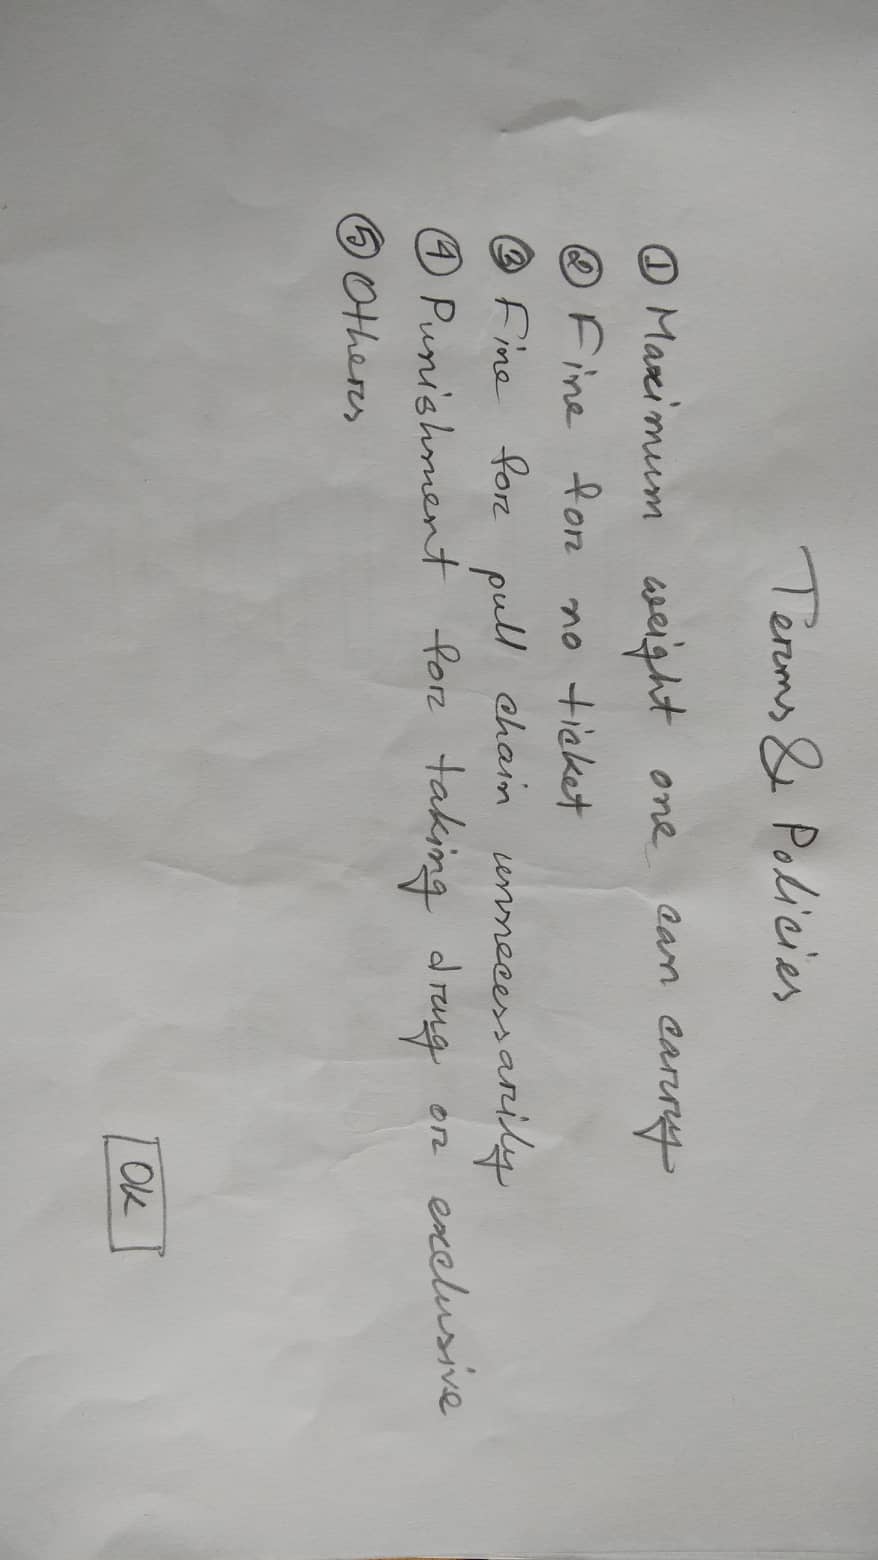 Terms & Policies
① Maximum weight one can carry
② Fine for no ticket
③ Fine for pull chain unnecessarily
④ Punishment for taking drug or exclusive
⑤ Others
OK